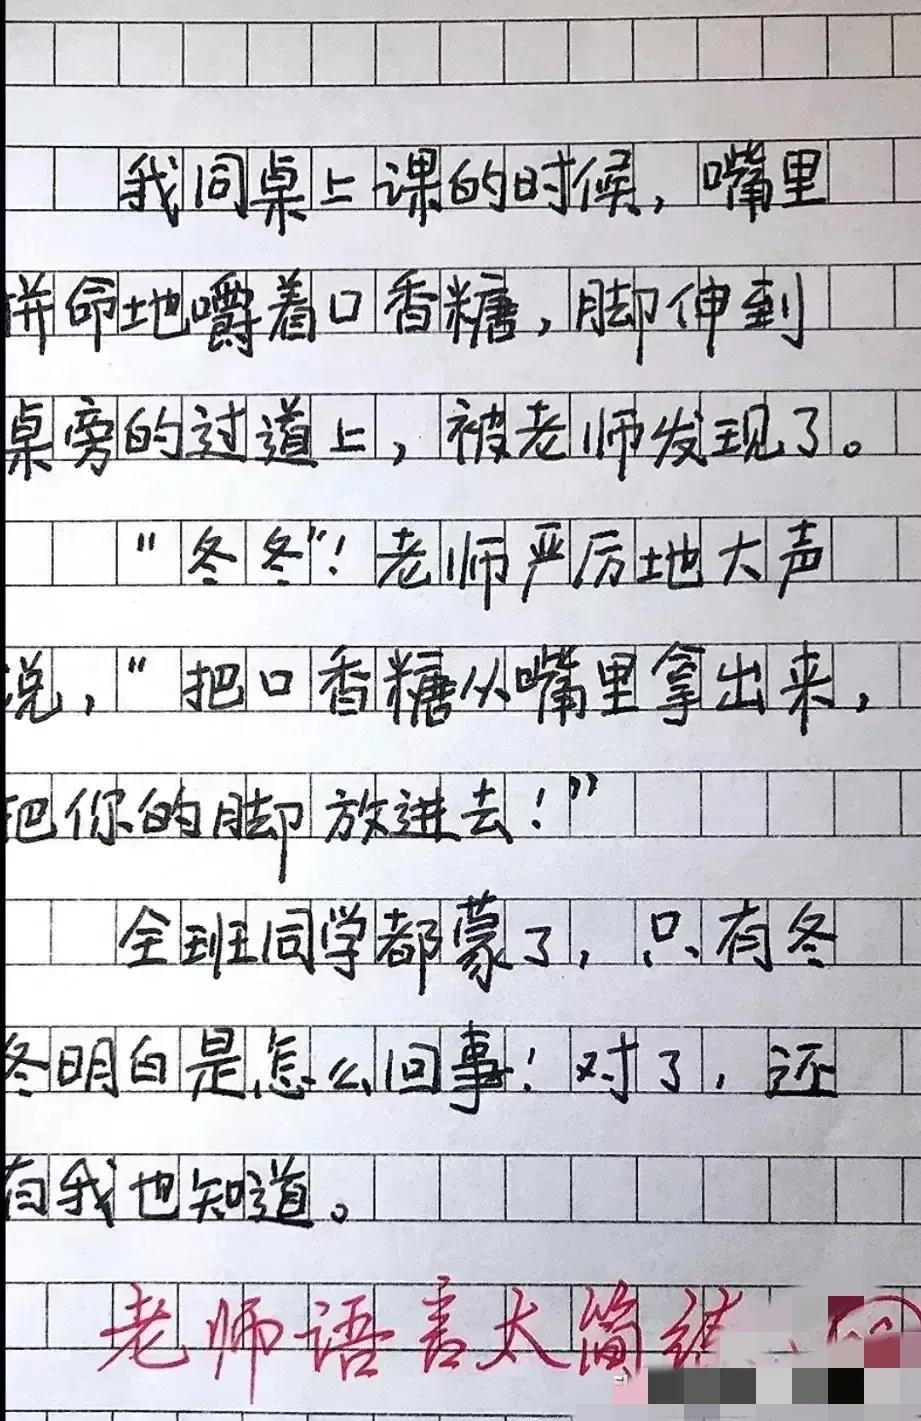 我同桌上课的时候,嘴里
拼命地嚼着口香糖,脚伸到
桌旁的过道上,被老师发现了。
“冬冬”!老师严厉地大声
说,“把口香糖从嘴里拿出来,
把你的脚放进去!”
全班同学都蒙了,只有冬
冬明白是怎么回事!对了,还
有我也知道。
老师语言太简练...